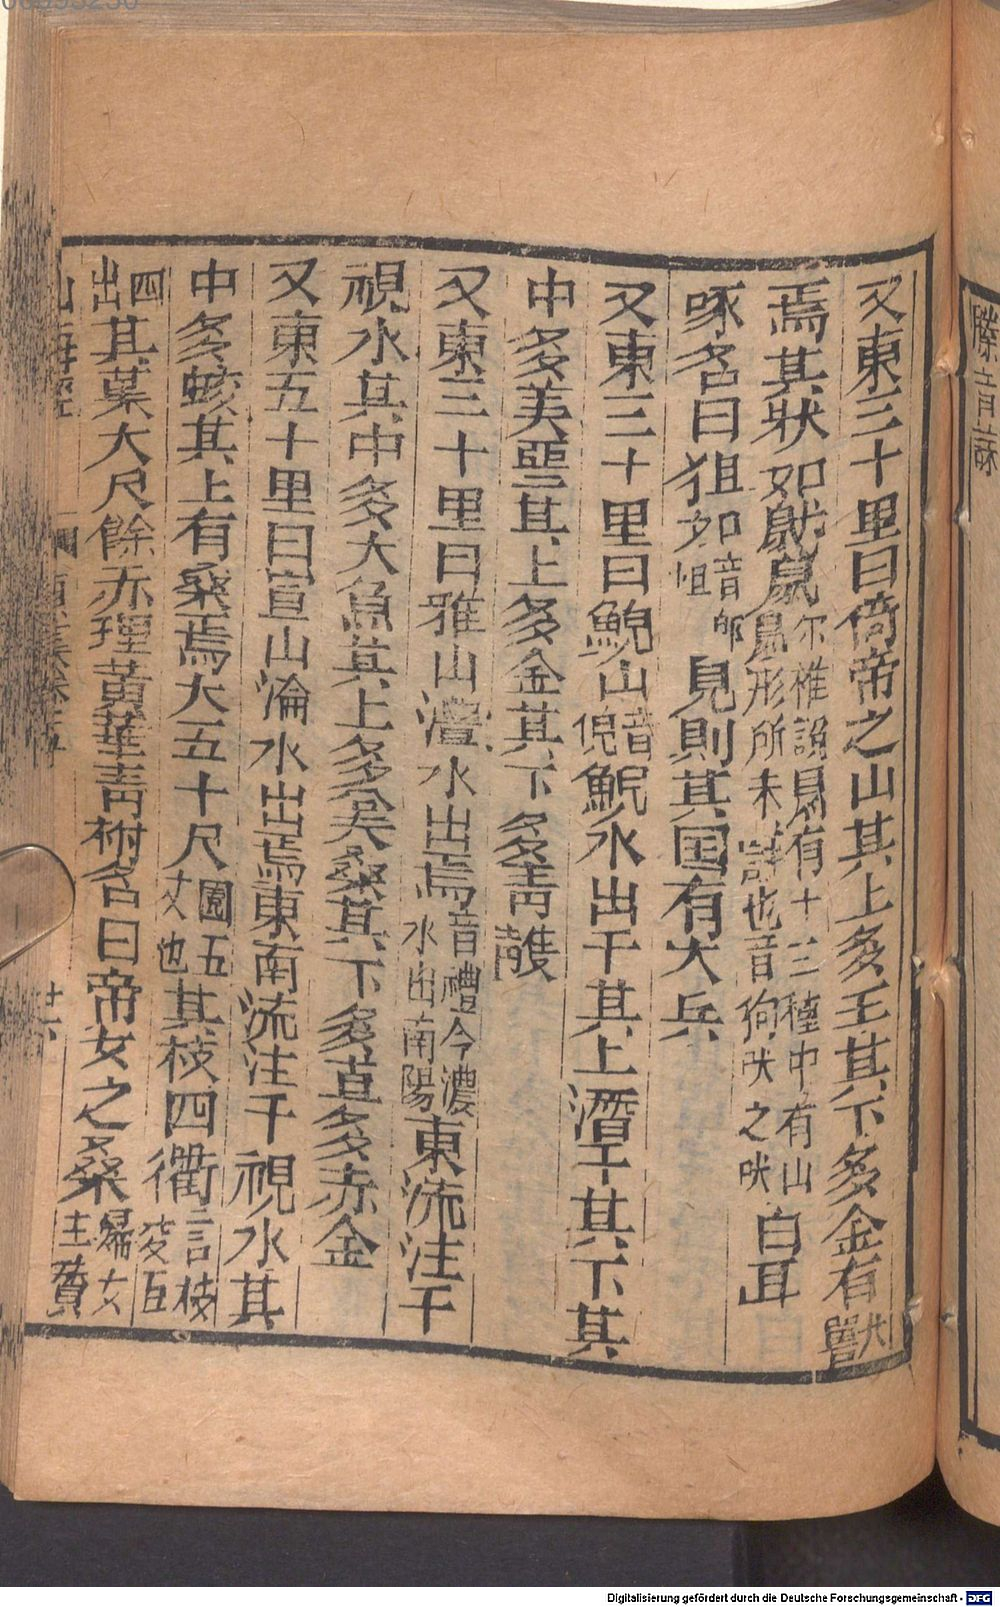 又東三十里曰倚帝之山其上多玉其下多金有獸
焉其狀如䶅鼠爾雅說鼠有十三種中有此鼠形所未詳也音狗吠之吠白耳
喙名曰狙如音即蛆見則其国有大兵
又東三十里曰鯢山音倪鯢水出于其上潛于其下其
中多美堊其上多金其下多青雘
又東三十里曰雅山澧水出焉音禮今澧水出南陽東流注于
視水其中多大魚其上多美桑其下多苴多赤金
又東五十里曰宣山淪水出焉東南流注于視水其
中多蛟其上有桑焉大五十尺圍五丈也其枝四衢言枝交互
四出其葉大尺餘赤理黃華青柎名曰帝女之桑婦女主蠶
山海經
滕青蓛
Digitalisierung gefördert durch die Deutsche Forschungsgemeinschaft - DFG